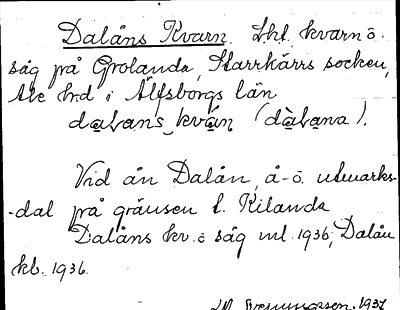 Dalåns Kvarn. Lht. kvarn o.
såg på Grolanda, Starrkärrs socken,
Ale hrd i Älfsborgs län
dalans kván (dàlana).
Vid ån Dalån, å- o. utmarks-
-dal på gränsen t. Kilanda
Dalåns kv. o såg ml. 1936, Dalån
kb. 1936.
1937